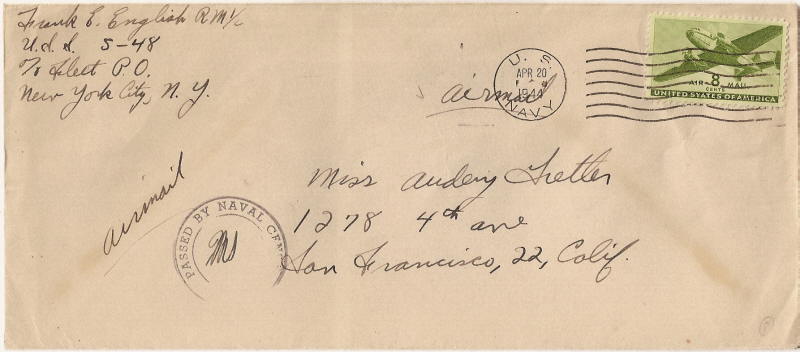 Frank E. English RM1/c
U.S.S. S-48
c/o Fleet P.O.
New York City, N.Y.
airmail
U. S.
APR 20
1944
NAVY
AIR 8 MAIL
CENTS
UNITED STATES OF AMERICA
airmail
PASSED BY NAVAL CEN
Miss Audery
1278 4th ave
San Francisco, 22, Calif.